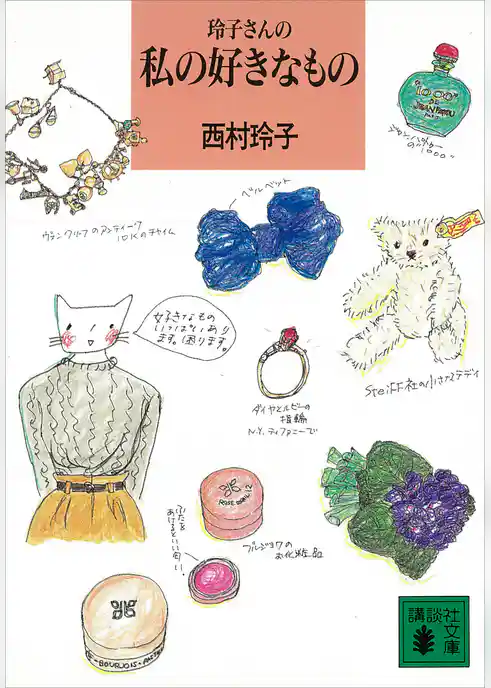 玲子さんの
私の好きなもの
西村玲子
"1000"
DE
JEAN PATOU
PARIS
ジャン・パトゥー
の"1000"
ベルベット
ヴァンクリーフのアンティーク
10Kのチャイム
好きなもの
いっぱいあり
ます。困ります。
Steiff社の小さなテディ
ダイヤとルビーの
指輪
N.Y.ティファニーで
ROSE
12
ふたを
あけるといい匂い。
ブルジョワの
お化粧品
BOURJOIS
講談
社
文庫